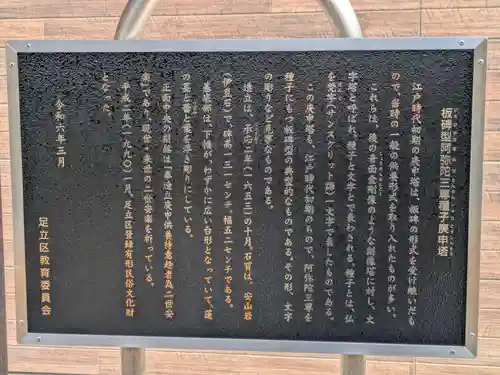 板碑型阿弥陀三尊種子庚申塔
江戸時代初期の庚申塔は、板碑の形式を受け継いだも
ので、当時の一般の供養形式を取り入れたものが多い。
これらは、後の青面金剛像のような刻像塔に対し、文
字塔と呼ばれ、種子と文字とで表わされる種子とは、仏
を梵字(サンスクリット語)一文字で表したものである。
この庚申塔も、江戸時代初期のもので、阿弥陀三尊を
種子にもつ板碑型の典型的なものである。その形、文字
の彫りなど見事なものである。
造立は、承応二年(一六五三)の十月、石質は、安山岩
(伊豆石)で、碑高一三一センチ、幅五二センチである。
基底部は、下幅が、わずかに広い台形となっていて、蓮
の葉と蕾と華を浮き彫りにしている。
正面中央の銘は「奉造立庚申供養待意趣者為二世安
楽」であり、現世・来世の二世安楽を祈っている。
平成二年(一九九〇)一月、足立区登録有形民俗文化財
となった。
令和六年三月
足立区教育委員会